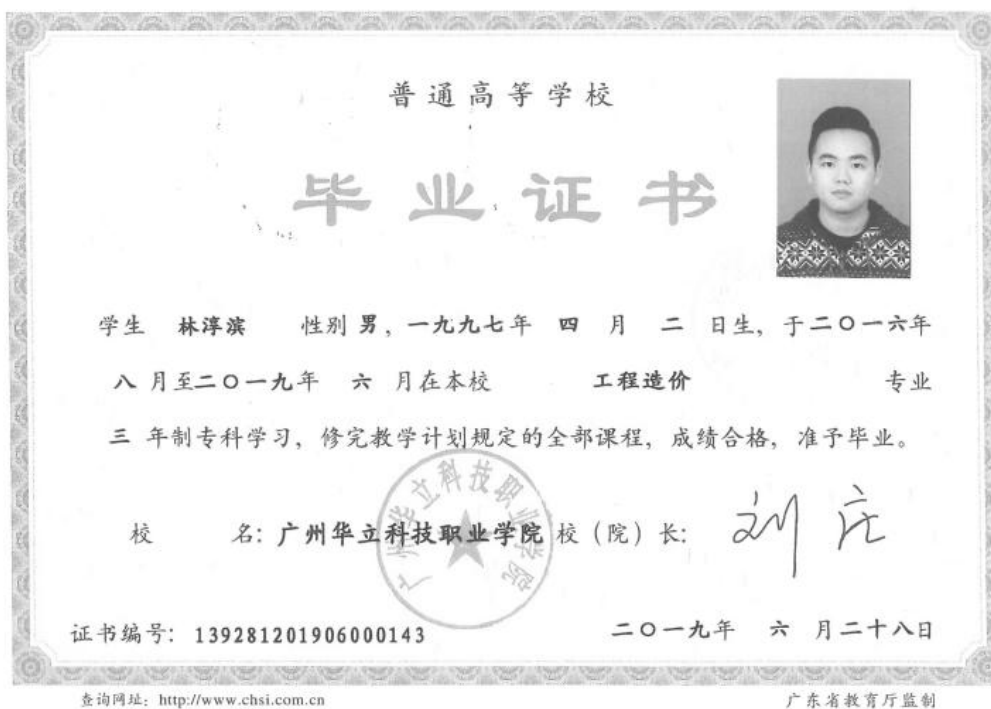 普通高等学校
毕业证书
学生 林淳滨 性别 男，一九九七年 四 月 二 日生，于二〇一六年
八 月至二〇一九年 六 月在本校 工程造价 专业
三 年制专科学习，修完教学计划规定的全部课程，成绩合格，准予毕业。
广州华立科技职业学院
校 名：广州华立科技职业学院 校（院）长：刘庄
证书编号：139281201906000143 二〇一九年 六 月二十八日
查询网址：http://www.chsi.com.cn 广东省教育厅监制